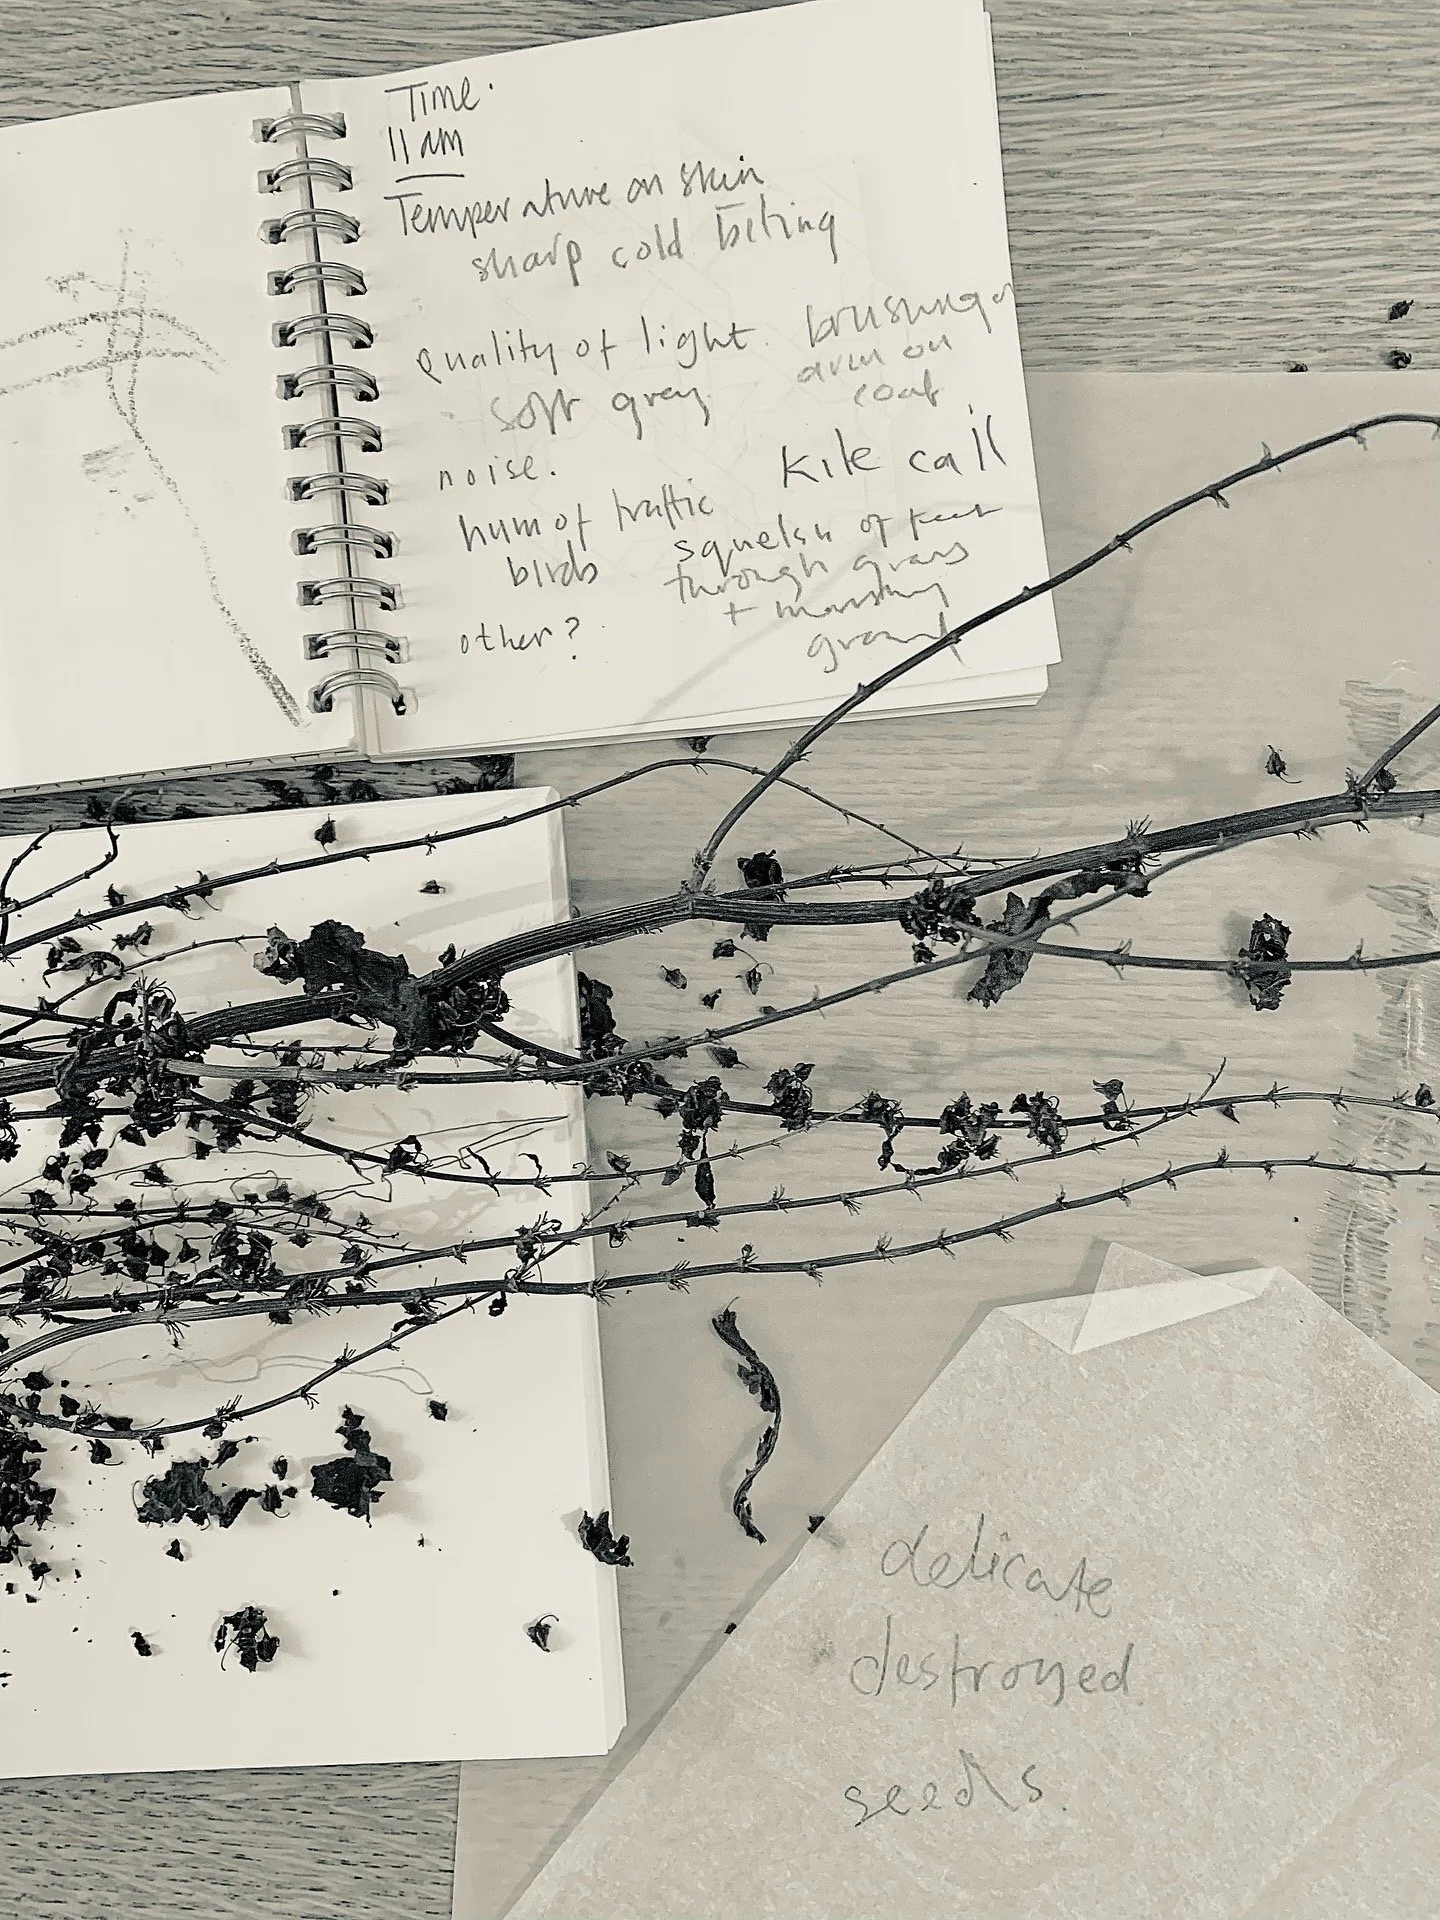 Time.
11am
Temperature on skin
sharp cold biting
Quality of light.
soft grey
brushing of
arm on
coat
noise.
hum of traffic
birds
Kite call
squelsh of feet
through grass
+ marshy
ground
other?
delicate
destroyed.
seeds.